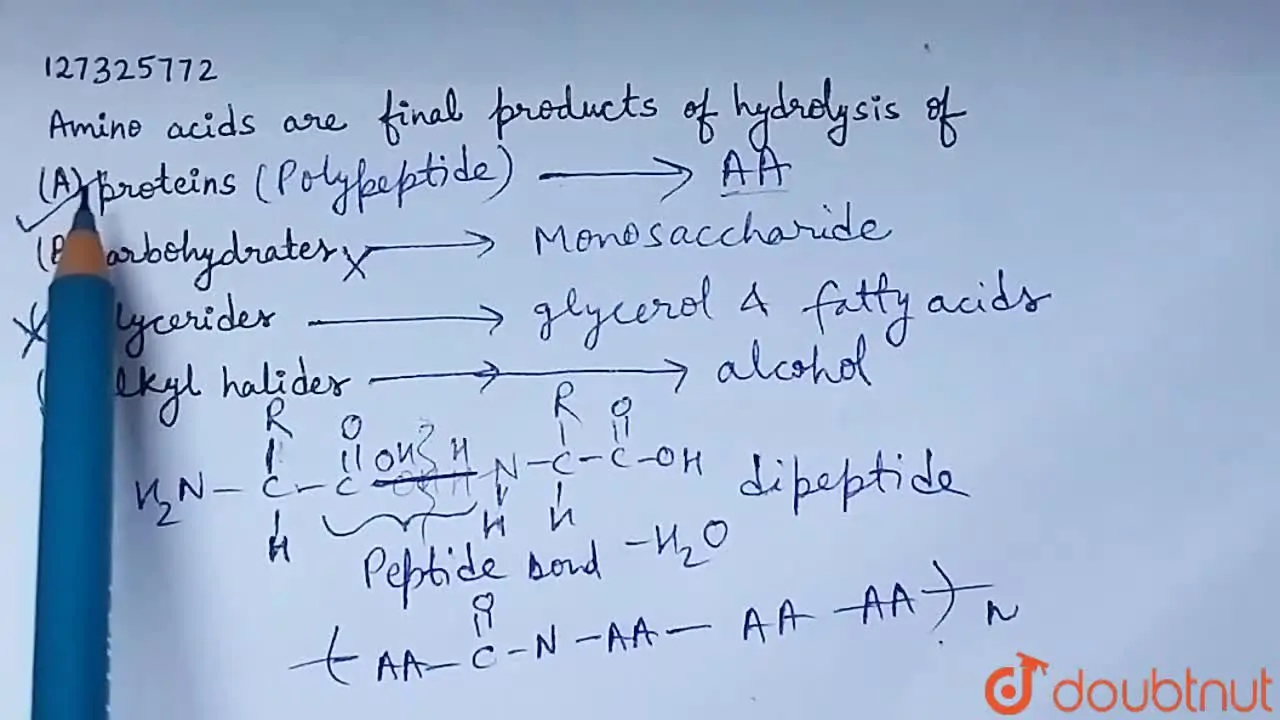 127325772
Amino acids are final products of hydrolysis of
(A) proteins (Polypeptide) → AA
arbohydrates X → Monosaccharide
X lycerides → glycerol & fatty acids
lkyl halides → alcohol
R O OH H R O
H2N - C - C N - C - C - OH dipeptide
H H H
Peptide bond -H2O
O
( AA - C - N - AA - AA - AA ) n
doubtnut